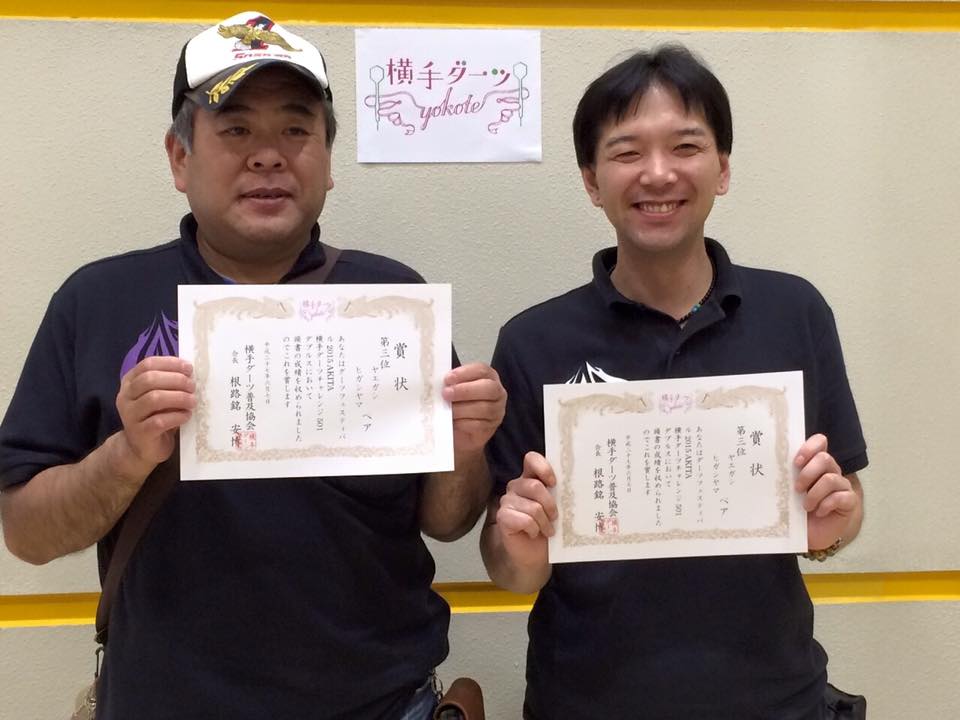 横手ダーツ
yokote
横手ダーツ
賞状
第三位
ヤエガシ
ヒガシヤマ
ペア
あなたはダーツフェスティバ
ル2015AKITA
横手ダーツチャレンジ501
ダブルスにおいて
頭書の成績を収められました
のでこれを賞します
平成二十七年六月七日
横手ダーツ普及協会
会長 根路銘 安博
横手ダーツ
yokote
賞状
第三位
ヤエガシ
ヒガシヤマ
ペア
あなたはダーツフェスティバ
ル2015AKITA
横手ダーツチャレンジ501
ダブルスにおいて
頭書の成績を収められました
のでこれを賞します
平成二十七年六月七日
横手ダーツ普及協会
会長 根路銘 安博